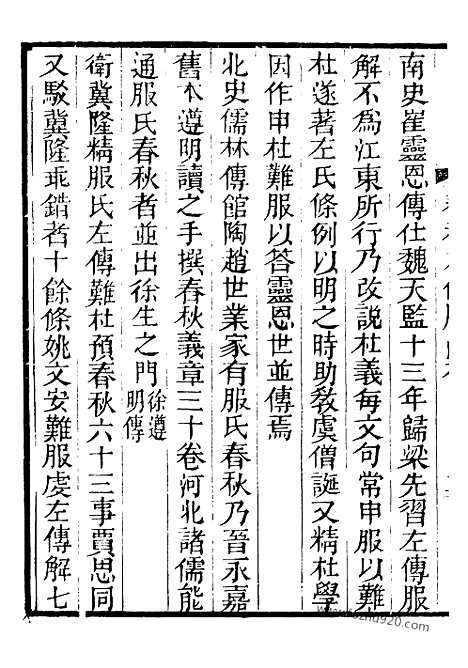 南史崔靈恩傳仕魏天監十三年歸梁先習左傳服
解不爲江東所行乃改説杜義每文句常申服以難
杜遂著左氏條例以明之時助敎虞僧誕又精杜學
因作申杜難服以答靈恩世並傳焉
北史儒林傳館陶趙世業家有服氏春秋乃晉永嘉
舊本遵明讀之手撰春秋義章三十卷河北諸儒能
通服氏春秋者並出徐生之門徐遵明傳
衛冀隆精服氏左傳難杜預春秋六十三事賈思同
又駁冀隆乖錯者十餘條姚文安難服虔左傳解七